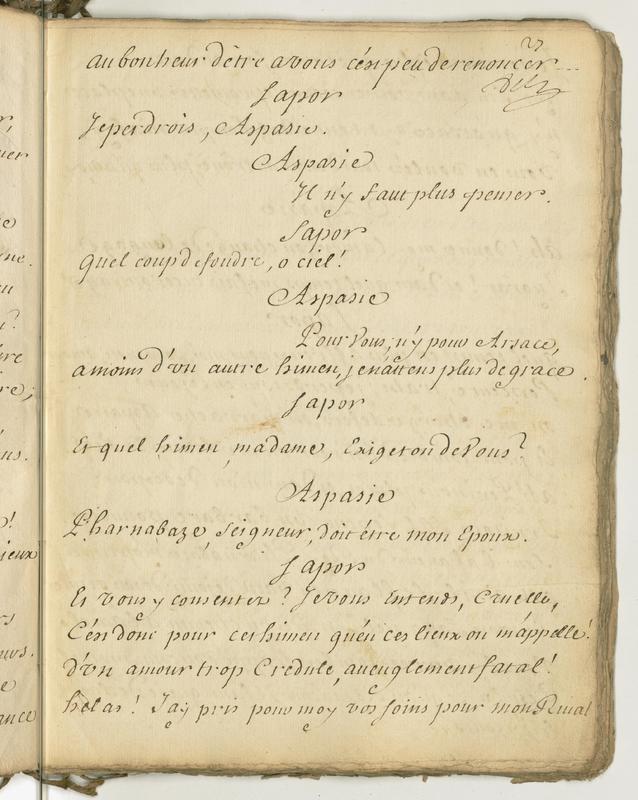 27
au bonheur d'être a vous c'ést peu de renoncer...
Sapor
Je perdrois, Aspasie.
Aspasie
Il n'y faut plus penser.
Sapor
quel coup de foudre, o ciel!
Aspasie
Pour vous, n'y pour Arsace,
a moins d'vn autre himen, je n'attens plus de grace.
Sapor
Et quel himen, madame, Exige ton de Vous?
Aspasie
Pharnabaze, Seigneur, doit être mon Epoux.
Sapor
Et vous y consentez? Je vous Entends, Cruelle,
C'ést donc pour cet himen qu'én ces lieux on m'appelle!
d'vn amour trop Credule, aueuglement fatal!
helas! J'ay pris pour moy vos soins pour mon Riual